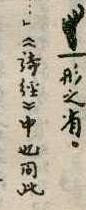 一形之省。
…」《詩經》中也同此